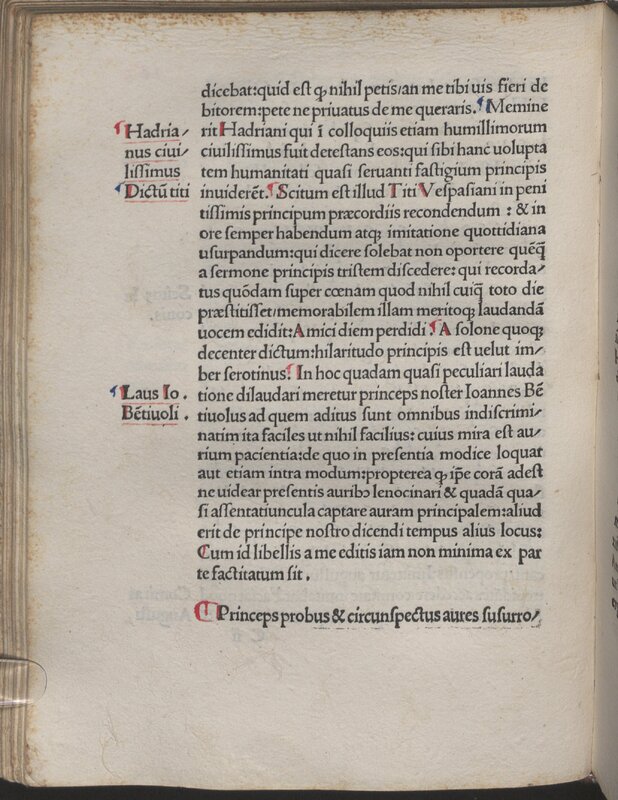 dicebat:quid est q̨ nihil petis/an me tibi uis fieri de
bitorem:pete ne priuatus de me queraris. ¶Memine
Hadria/
rit Hadriani qui ī colloquiis etiam humillimorum
nus ciui/
ciuilissimus fuit detestans eos:qui sibi hanc uolupta
lissimus
tem humanitati quasi seruanti fastigium principis
Dictū titi
inuiderēt. ¶Scitum est illud Titi Vespasiani in peni
tissimis principum præcordiis recondendum : & in
ore semper habendum atq; imitatione quottidiana
usurpandum:qui dicere solebat non oportere quēq̄
a sermone principis tristem discedere: qui recorda/
tus quōdam super cœnam quod nihil cuiq̄ toto die
præstitisset/memorabilem illam meritoq; laudandā
uocem edidit:Amici diem perdidi. ¶A solone quoq;
decenter dictum:hilaritudo principis est uelut im/
ber serotinus. ¶In hoc quadam quasi peculiari lauda
Laus Io .
tione dilaudari meretur princeps noster Ioannes Bē
Bētiuoli .
tiuolus ad quem aditus sunt omnibus indiscrimi/
natim ita faciles ut nihil facilius: cuius mira est au/
rium pacientia:de quo in presentia modice loquar
aut etiam intra modum:propterea q̨ ip̄e corā adest
ne uidear presentis auribꝰ lenocinari & quadā qua/
si assentatiuncula captare auram principalem:aliud
erit de principe nostro dicendi tempus alius locus:
Cum id libellis a me editis iam non minima ex par
te factitatum sit .
¶Princeps probus & circunspectus aures susurro/